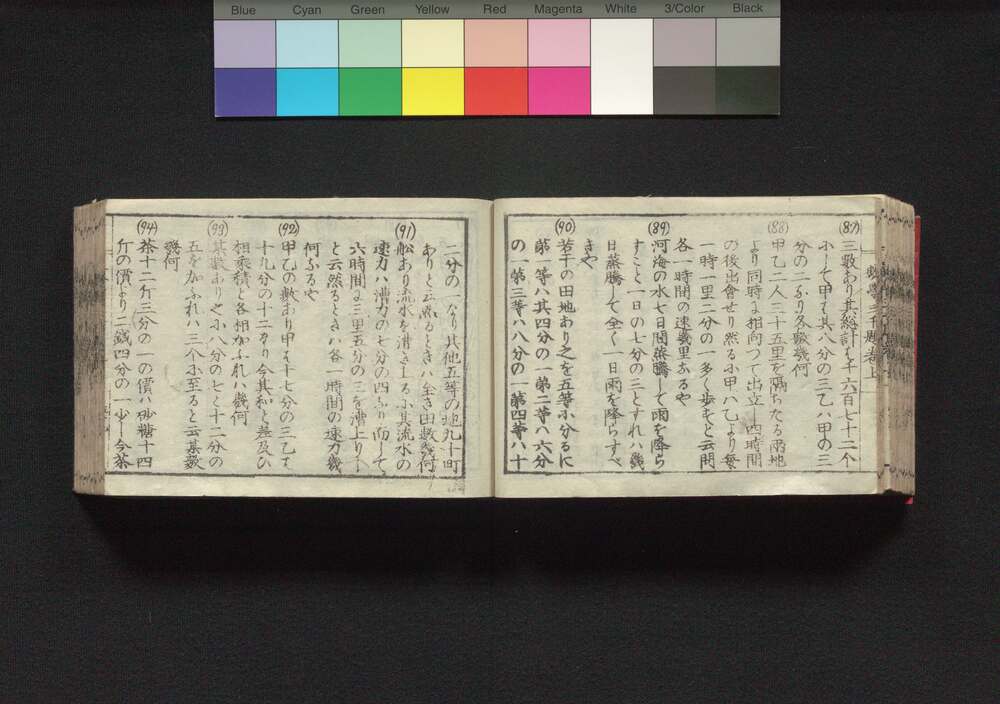 Blue Cyan Green Yellow Red Magenta White 3/Color Black
数學三千題巻上
(87)
三數あり其総計ハ千六百七十二个
にして甲ハ其八分の三乙ハ甲の三
分の二なり各數幾何
(88)
甲乙二人三十五里を隔ちたる兩地
より同時に相向つて出立し四時間
の後出會せり然るに甲ハ乙より毎
一時一里二分の一多く歩むと云問
各一時間の速幾里なるや
(89)
河海の水七日間蒸騰して雨を降ら
すこと一日の七分の三とすれハ幾
日蒸騰して全く一日雨を降らすべ
きや
(90)
若干の田地あり之を五等に分るに
第一等ハ其四分の一第二等ハ六分
の一第三等ハ八分の一第四等ハ十
二分の一なり其他五等の地九十町
ありと云然るときハ全き田數幾何
(91)
舩あり流水を漕き上るに其流水の
速力ハ漕力の七分の四なり而して
六時間に三里五分の三を漕上り
と云然るときハ各一時間の速力幾
何なるや
(92)
甲乙の數あり甲ハ十七分の三乙ハ
十九分の十二なり今其和と差及ひ
相乗積と各相加ふれハ幾何
(93)
某數あり之に八分の七と十二分の
五を加ふれハ三个に至ると云某數
幾何
(94)
茶十二斤三分の一の價ハ砂糖十四
斤の價より二錢四分の一少し今茶